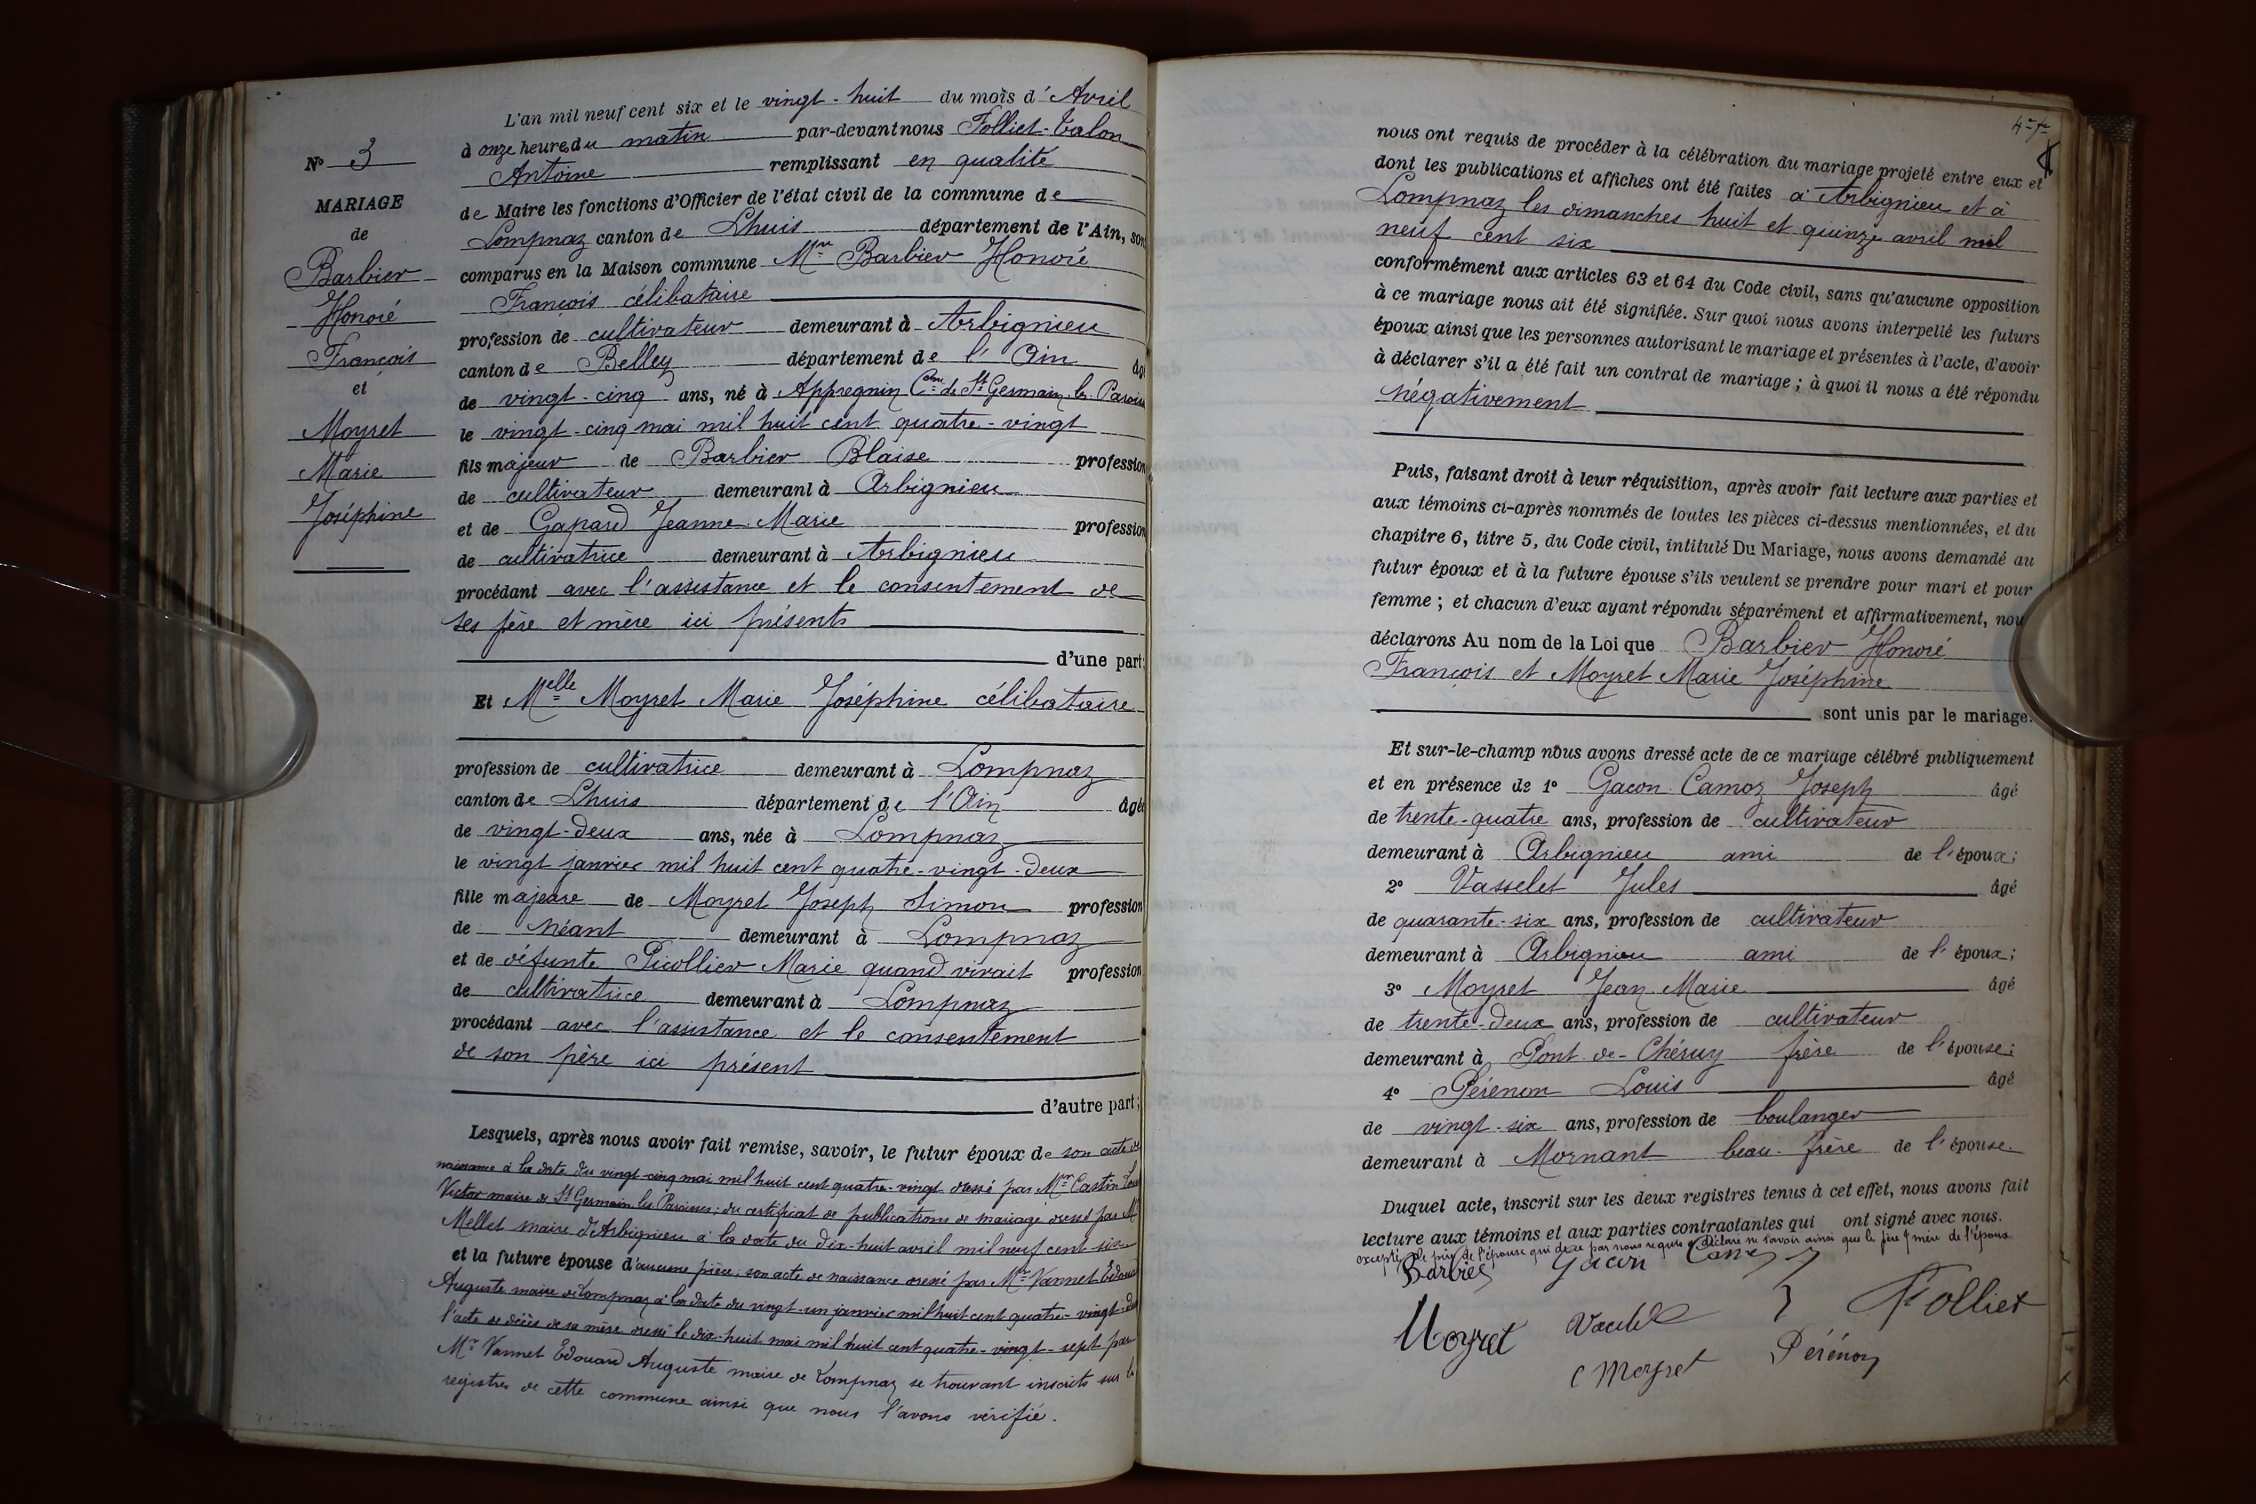 L'an mil neuf cent six et le vingt-huit du mois d'Avril
à onze heures du matin par-devant nous Folliet-Talon
Antoine remplissant en qualité
de Maire les fonctions d'Officier de l'état civil de la commune de
Lompnaz canton de Lhuis département de l'Ain, sont
comparus en la Maison commune Mr Barbier Honoré
François célibataire
profession de cultivateur demeurant à Arbignieu
canton de Belley département de l'Ain âgé
de vingt-cinq ans, né à Appregnin Cne de St Germain les Paroisses
le vingt-cinq mai mil huit cent quatre-vingt
fils majeur de Barbier Blaise profession
de cultivateur demeurant à Arbignieu
et de Gapard Jeanne Marie profession
de cultivatrice demeurant à Arbignieu
procédant avec l'assistance et le consentement de
ses père et mère ici présents
d'une part;
Et Melle Moyret Marie Joséphine célibataire
profession de cultivatrice demeurant à Lompnaz
canton de Lhuis département de l'Ain âgée
de vingt-deux ans, née à Lompnaz
le vingt janvier mil huit cent quatre-vingt-deux
fille majeure de Moyret Joseph Simon profession
de néant demeurant à Lompnaz
et de défunte Picollier Marie quand vivait profession
de cultivatrice demeurant à Lompnaz
procédant avec l'assistance et le consentement
de son père ici présent
d'autre part;
Lesquels, après nous avoir fait remise, savoir, le futur époux de son acte de
naissance à la date du vingt-cinq mai mil huit cent quatre-vingt dressé par Mr Castin
Victor maire de St Germain les Paroisses; du certificat de publications de mariage dressé par Mr
Mellet maire d'Arbignieu à la date du dix-huit avril mil neuf cent six
et la future épouse d'aucune pièce, son acte de naissance dressé par Mr Vannet Edouard
Auguste maire de Lompnaz à la date du vingt-un janvier mil huit cent quatre-vingt-deux
l'acte de décès de sa mère dressé le dix-huit mai mil huit cent quatre-vingt-sept par
Mr Vannet Edouard Auguste maire de Lompnaz se trouvant inscrits sur les
registres de cette commune ainsi que nous l'avons vérifié.
No 3
MARIAGE
de
Barbier
Honoré
François
et
Moyret
Marie
Joséphine
nous ont requis de procéder à la célébration du mariage projeté entre eux et
dont les publications et affiches ont été faites à Arbignieu et à
Lompnaz les dimanches huit et quinze avril mil
neuf cent six
conformément aux articles 63 et 64 du Code civil, sans qu'aucune opposition
à ce mariage nous ait été signifiée. Sur quoi nous avons interpellé les futurs
époux ainsi que les personnes autorisant le mariage et présentes à l'acte, d'avoir
à déclarer s'il a été fait un contrat de mariage; à quoi il nous a été répondu
négativement
Puis, faisant droit à leur réquisition, après avoir fait lecture aux parties et
aux témoins ci-après nommés de toutes les pièces ci-dessus mentionnées, et du
chapitre 6, titre 5, du Code civil, intitulé Du Mariage, nous avons demandé au
futur époux et à la future épouse s'ils veulent se prendre pour mari et pour
femme; et chacun d'eux ayant répondu séparément et affirmativement, nous
déclarons Au nom de la Loi que Barbier Honoré
François et Moyret Marie Joséphine
sont unis par le mariage.
Et sur-le-champ nous avons dressé acte de ce mariage célébré publiquement
et en présence de 1o Gacon Camoz Joseph âgé
de trente-quatre ans, profession de cultivateur
demeurant à Arbignieu ami de l'époux;
2o Vasselet Jules âgé
de quarante-six ans, profession de cultivateur
demeurant à Arbignieu ami de l'époux;
3o Moyret Jean Marie âgé
de trente-deux ans, profession de cultivateur
demeurant à Pont-de-Chéruy frère de l'épouse;
4o Pérenon Louis âgé
de vingt-six ans, profession de boulanger
demeurant à Mornant beau-frère de l'épouse.
Duquel acte, inscrit sur les deux registres tenus à cet effet, nous avons fait
lecture aux témoins et aux parties contractantes qui ont signé avec nous.
excepté le père de l'épouse qui de ce par nous requis a déclaré ne savoir ainsi que les père & mère de l'époux
Barbier Gacon
Moyret Folliet
Moyret Pérénon